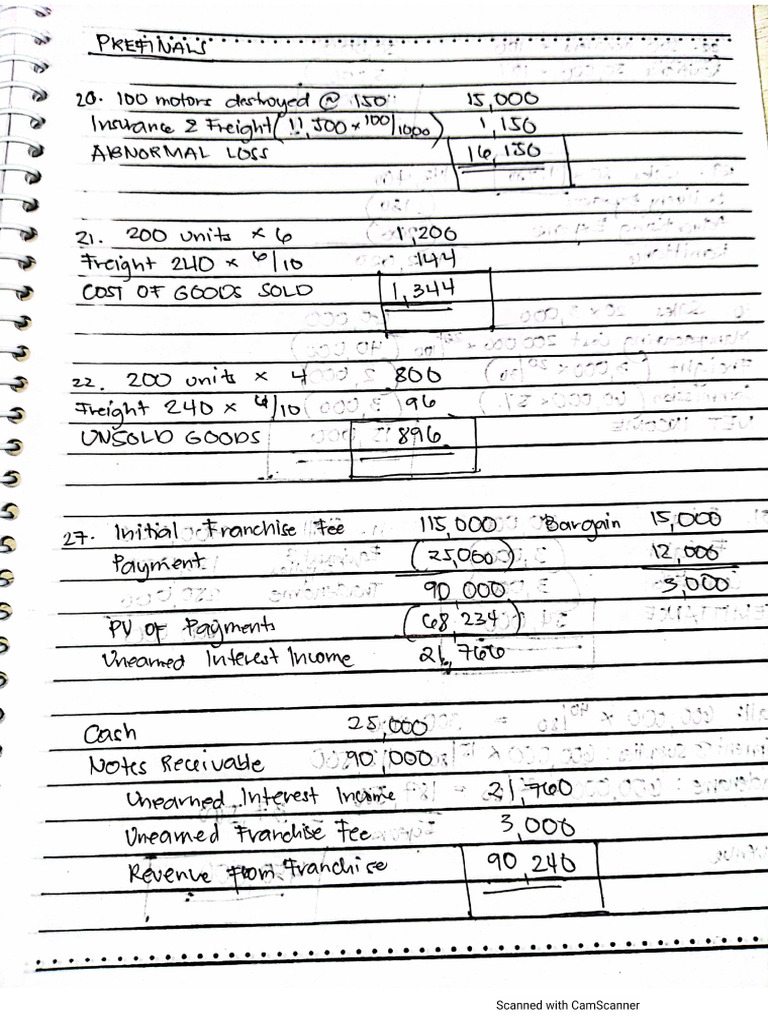 PREFINALS
20. 100 motors destroyed @ 150 15,000
Insurance & Freight (11,500 x 100/1000) 1,150
ABNORMAL LOSS 16,150
21. 200 units x 6 1,200
Freight 240 x 6/10 144
COST OF GOODS SOLD 1,344
22. 200 units x 4 800
Freight 240 x 4/10 96
UNSOLD GOODS 896
27. Initial Franchise Fee 115,000 Bargain 15,000
Payment (25,000) 12,000
90,000 3,000
PV of Payments (68,234)
Unearned Interest Income 21,766
Cash 25,000
Notes Receivable 90,000
Unearned Interest Income 21,760
Unearned Franchise Fee 3,000
Revenue from Franchise 90,240
Scanned with CamScanner